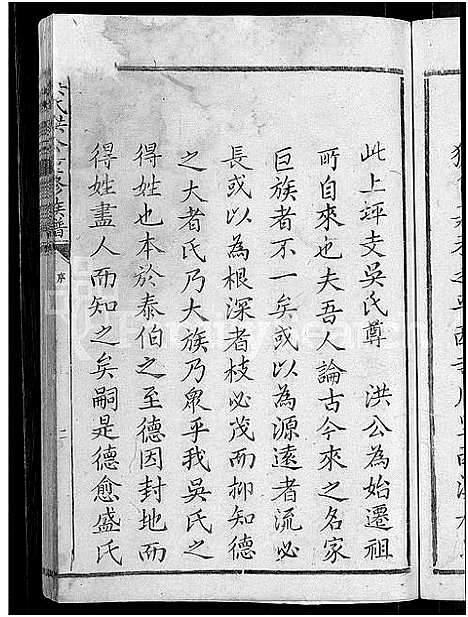 此上坪支吳氏尊　洪公為始遷祖
所自來也夫吾人論古今來之名家
巨族者不一矣或以為源遠者流必
長或以為根深者枝必茂而抑知德
之大者氏乃大族乃衆乎我吳氏之
得姓也本於泰伯之至德因封地而
得姓盡人而知之矣嗣是德愈盛氏
氏洪公
修族譜
序